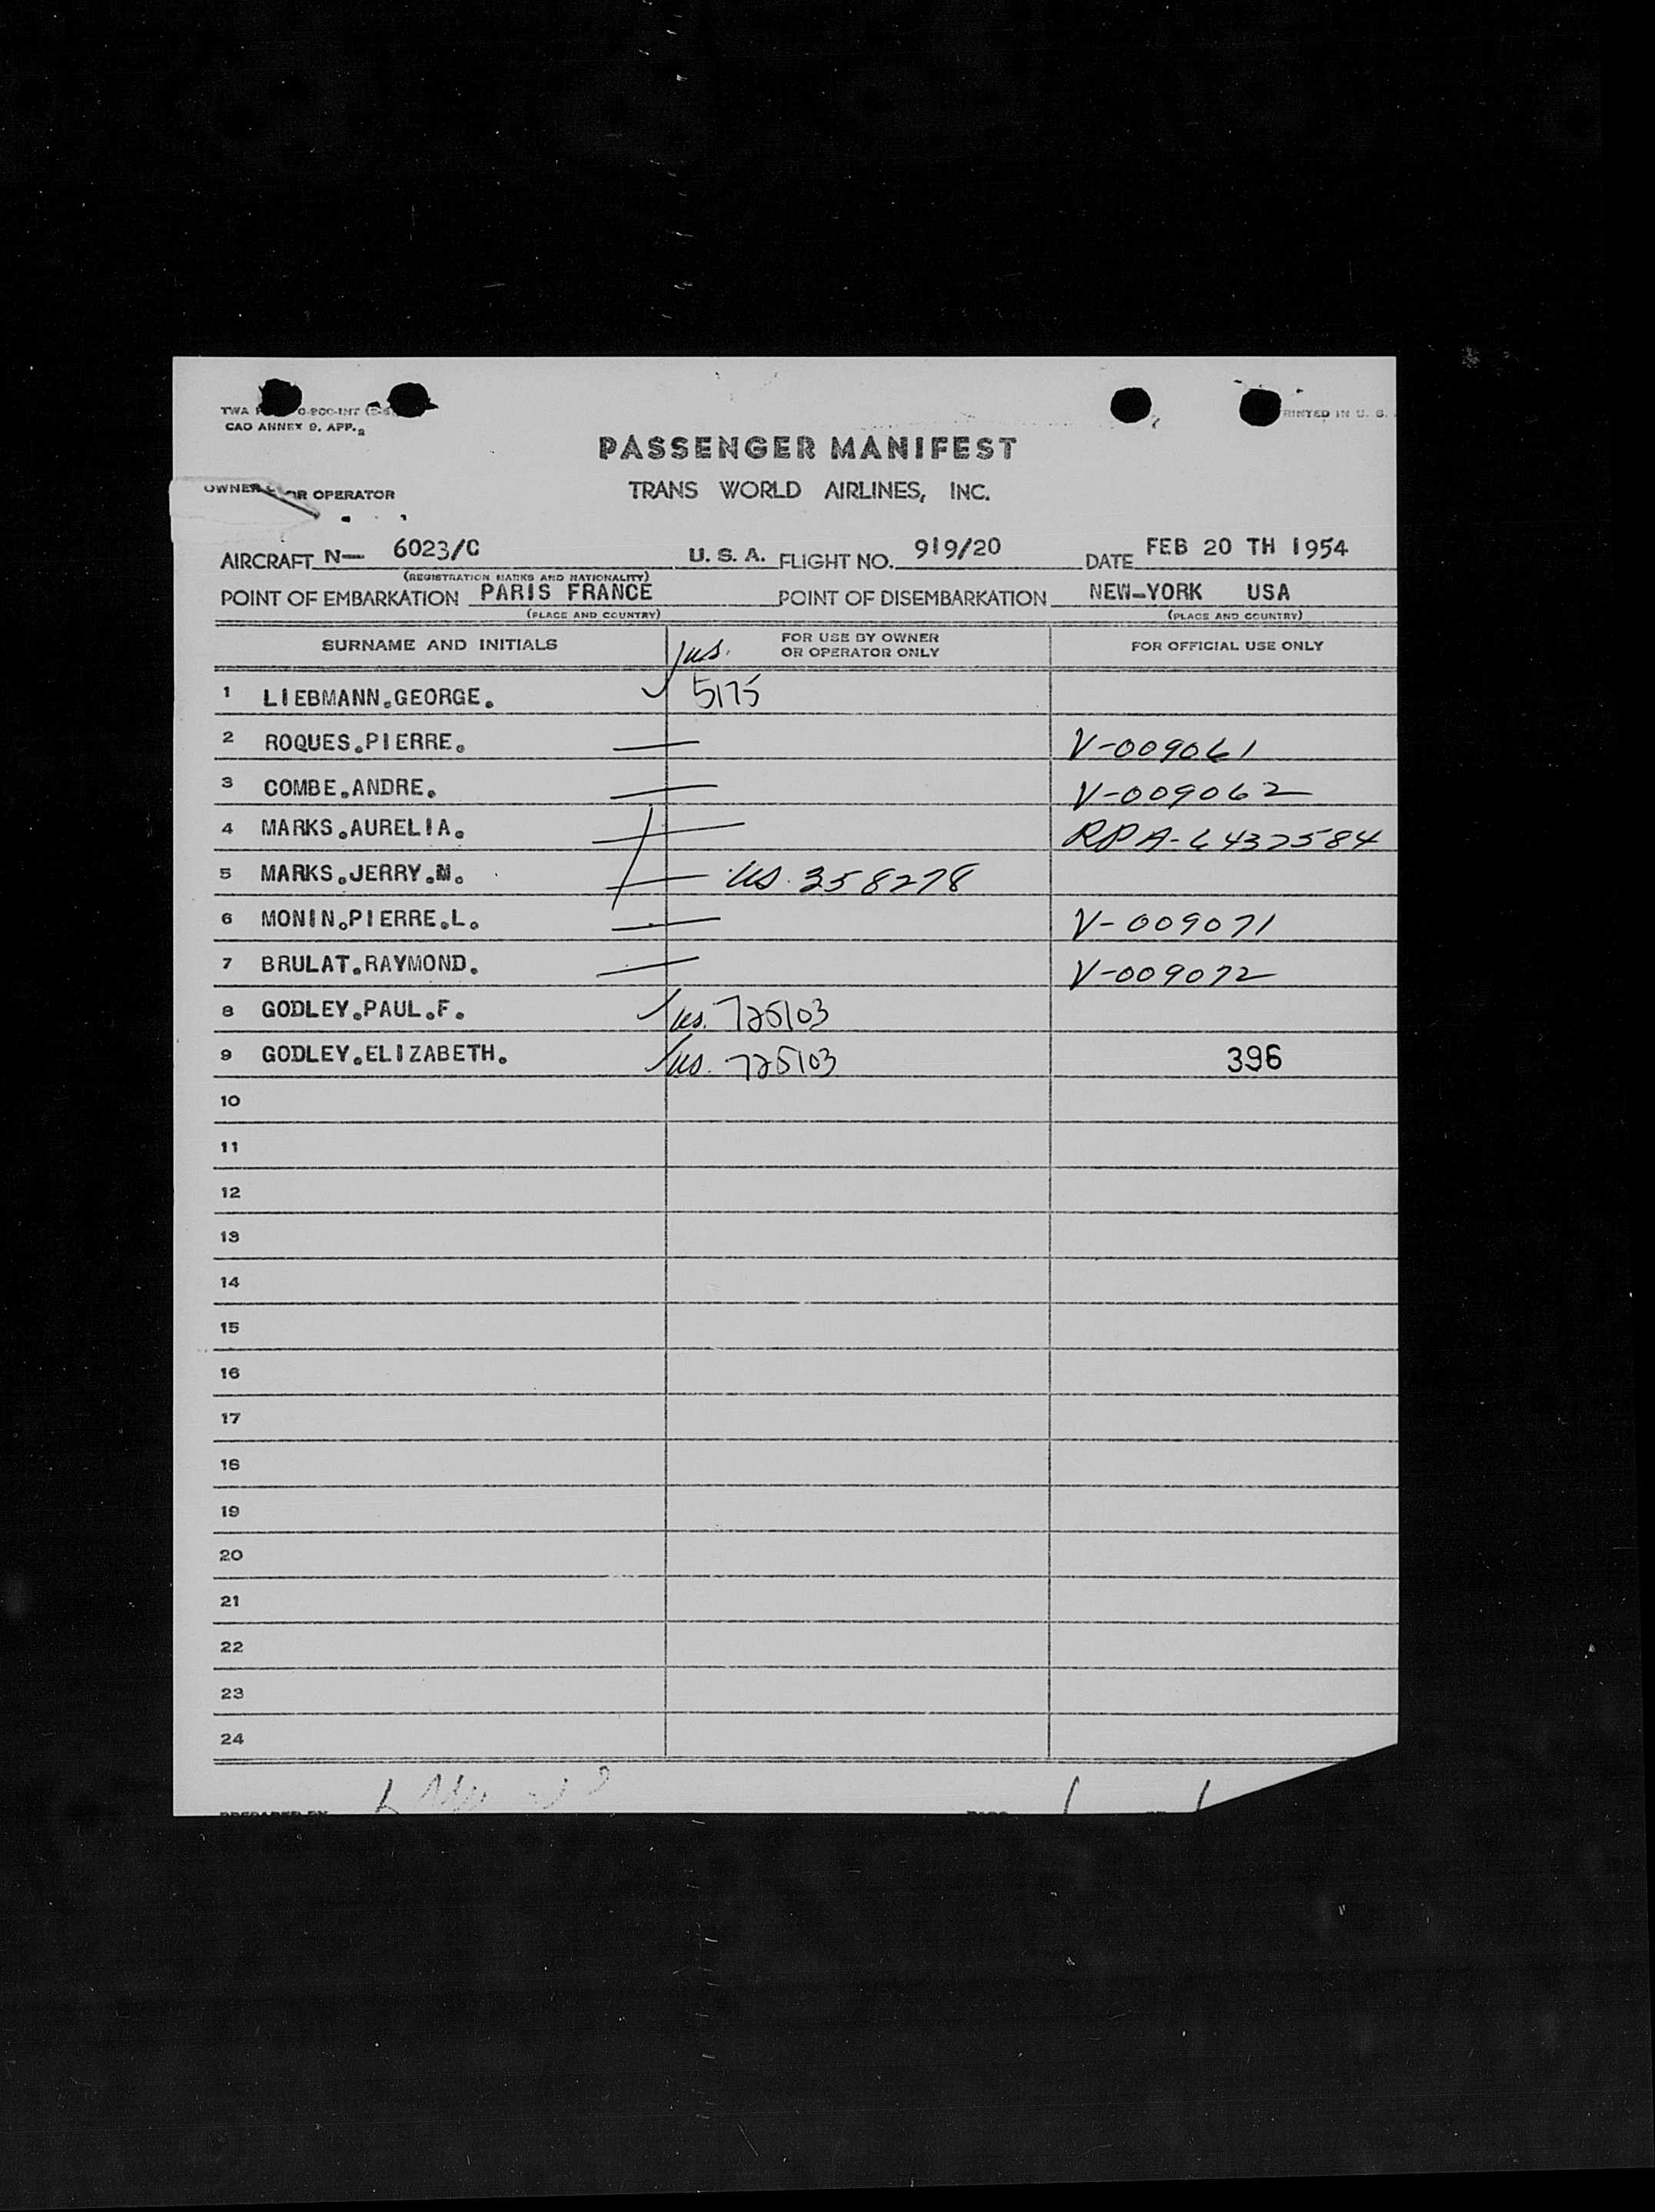 TWA
CAO ANNEX 9, APP. 2
PRINTED IN U. S.
PASSENGER MANIFEST
OWNER OR OPERATOR
TRANS WORLD AIRLINES, INC.
AIRCRAFT N— 6023/C U. S. A. FLIGHT NO. 919/20 DATE FEB 20 TH 1954
(REGISTRATION MARKS AND NATIONALITY)
POINT OF EMBARKATION PARIS FRANCE POINT OF DISEMBARKATION NEW-YORK USA
(PLACE AND COUNTRY) (PLACE AND COUNTRY)
SURNAME AND INITIALS us. FOR USE BY OWNER OR OPERATOR ONLY FOR OFFICIAL USE ONLY
1 LIEBMANN.GEORGE. 5175
2 ROQUES.PIERRE. V-009061
3 COMBE.ANDRE. V-009062
4 MARKS.AURELIA. RP A-6432584
5 MARKS.JERRY.M. us. 358278
6 MONIN.PIERRE.L. V-009071
7 BRULAT.RAYMOND. V-009072
8 GODLEY.PAUL.F. us. 725103
9 GODLEY.ELIZABETH. us. 725103 396
10
11
12
13
14
15
16
17
18
19
20
21
22
23
24
PREPARED BY